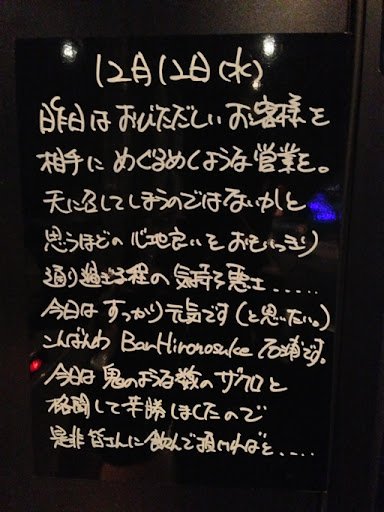 12月12日(水)
昨日はおびただしいお客様を
相手にめくるめくような営業を。
天に召してしまうのではないかと
思うほどの心地良いをおもいっきり
通り過ぎる程の気持ち悪さ.....
今日はすっかり元気です(と思いたい。)
こんばんわ BanHironosuke 石浦です。
今日は鬼のような数のザクロと
格闘して辛勝しましたので
是非皆さんに飲んで頂ければと.....